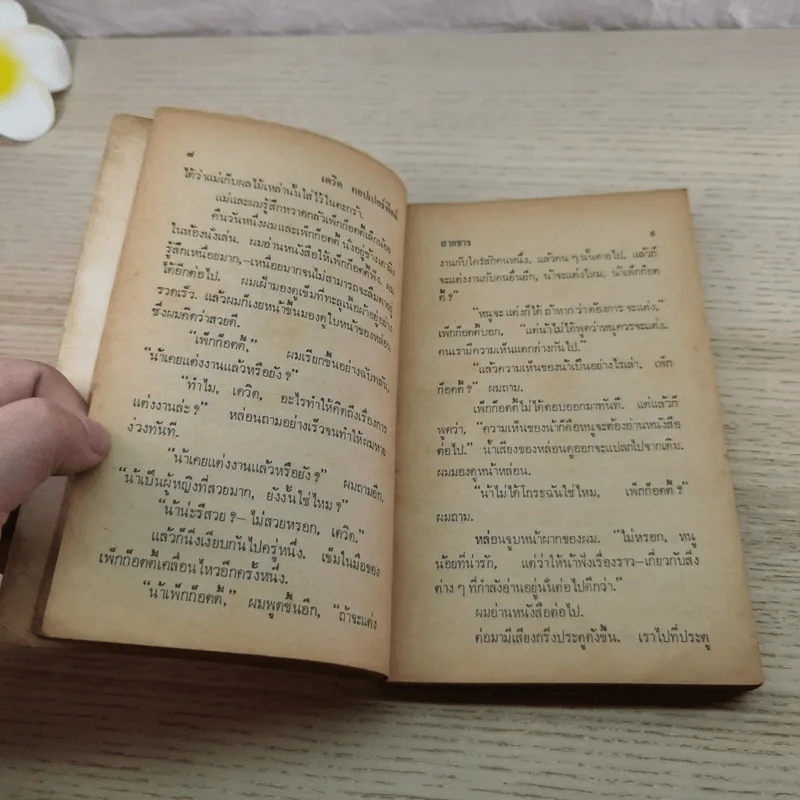 ๘
เดวิด คอปเปอร์ฟิลด์
ได้ว่าแม่เก็บผลไม้เหล่านั้นใส่ไว้ในตะกร้า.
แม่และผมรู้สึกหวาดกลัวเพ็กก็อตตี้เล็กน้อย
คืนวันหนึ่งผมและเพ็กก็อตตี้ นั่งอยู่ข้างเตาผิง
ในห้องนั่งเล่น. ผมอ่านหนังสือให้เพ็กก็อตตี้ฟัง. ผม
รู้สึกเหนื่อยมาก,—เหนื่อยมากจนไม่สามารถจะลืมตาอยู่
ได้อีกต่อไป. ผมเฝ้ามองดูเข็มที่ทะลุเนื้อผ้าอยู่อย่าง
รวดเร็ว. แล้วผมก็เงยหน้าขึ้นมองดูใบหน้าของหล่อน
ซึ่งผมคิดว่าสวยดี.
“เพ็กก็อตตี้,” ผมเรียกขึ้นอย่างฉับพลัน,
“น้าเคยแต่งงานแล้วหรือยัง?”
“ทำไม, เดวิด, อะไรทำให้คิดถึงเรื่องการ
แต่งงานล่ะ?” หล่อนถามอย่างเร็วจนทำให้ผมหาย
ง่วงทันที.
“น้าเคยแต่งงานแล้วหรือยัง?” ผมถามอีก.
“น้าเป็นผู้หญิงที่สวยมาก, ยังงั้นใช่ไหม?”
“น้าน่ะรึสวย?— ไม่สวยหรอก, เดวิด.”
แล้วก็นิ่งเงียบกันไปครู่หนึ่ง. เข็มในมือของ
เพ็กก็อตตี้เคลื่อนไหวอีกครั้งหนึ่ง.
“น้าเพ็กก็อตตี้,” ผมพูดขึ้นอีก, “ถ้าจะแต่ง
สายธาร
๙
งานกับใครสักคนหนึ่ง, แล้วคน ๆ นั้นตายไป, แล้วก็
จะแต่งงานกับคนอื่นอีก, น้าจะแต่งไหม, น้าเพ็กก็อต
ตี้?”
“หนูจะแต่งก็ได้ ถ้าหากว่าต้องการจะแต่ง,”
เพ็กก็อตตี้บอก, “แต่น้าไม่ได้พูดว่าหนูควรจะแต่ง.
คนเรามีความเห็นแตกต่างกันไป.”
“แล้วความเห็นของน้าเป็นอย่างไรเล่า, เพ็ก
ก็อตตี้?” ผมถาม.
เพ็กก็อตตี้ไม่ได้ตอบออกมาทันที. แต่แล้วก็
พูดว่า, “ความเห็นของน้าก็คือหนูจะต้องอ่านหนังสือ
ต่อไป.” น้ำเสียงของหล่อนดูออกจะแปลกไปจากเดิม.
ผมมองดูหน้าหล่อน.
“น้าไม่ได้โกรธฉันใช่ไหม, เพ็กก็อตตี้?”
ผมถาม.
หล่อนจูบหน้าผากของผม. “ไม่หรอก, หนู
น้อยที่น่ารัก, แต่ว่าให้น้าฟังเรื่องราว—เกี่ยวกับสิ่ง
ต่าง ๆ ที่กำลังอ่านอยู่นั่นต่อไปดีกว่า.”
ผมอ่านหนังสือต่อไป.
ต่อมามีเสียงกริ่งประตูดังขึ้น. เราไปที่ประตู